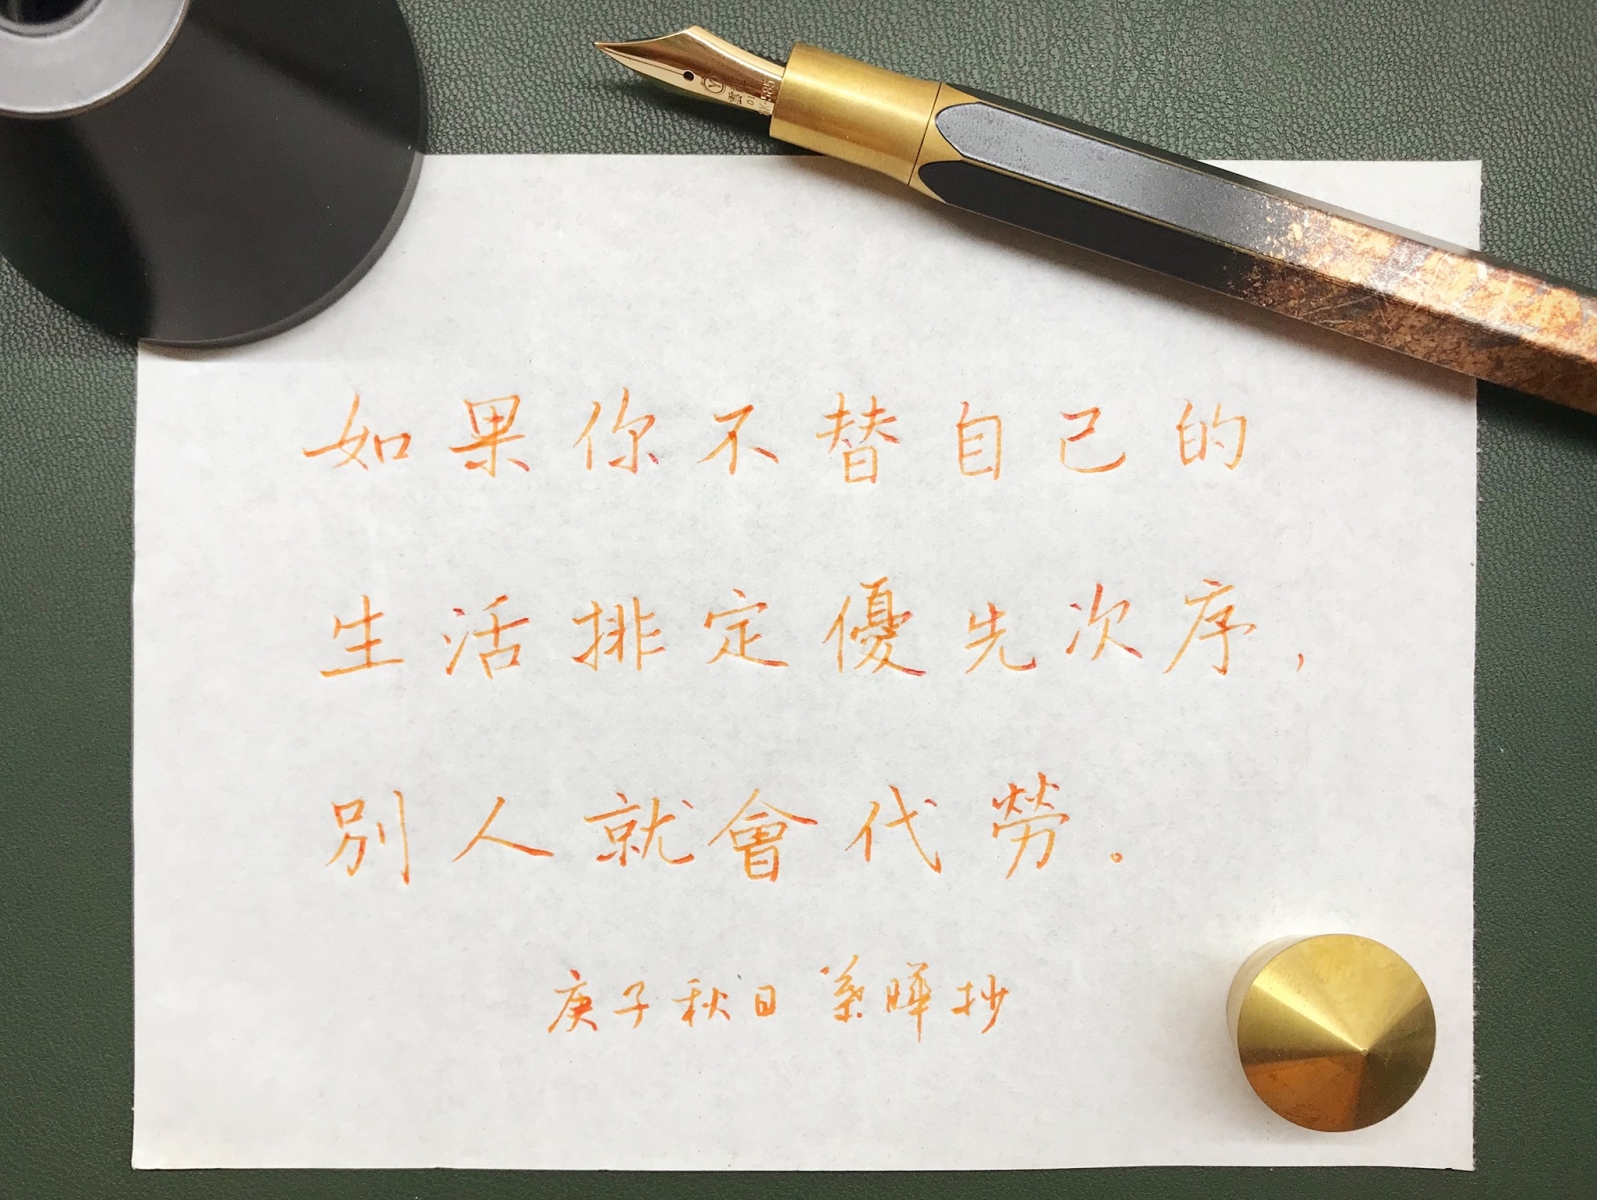 如果你不替自己的
生活排定優先次序,
別人就會代勞。
庚子秋日 葉暉抄